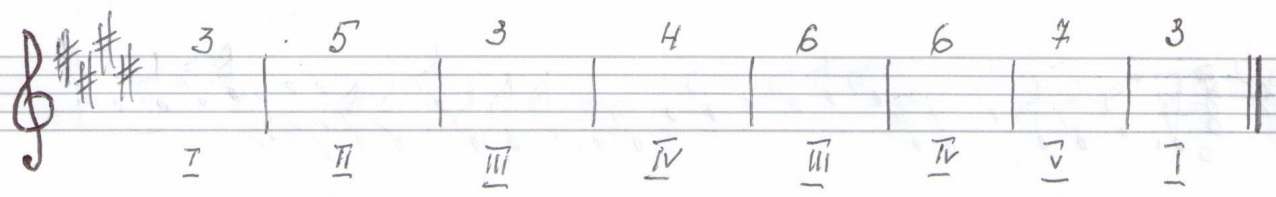 3 5 3 4 6 6 7 3
I II III IV III IV V I